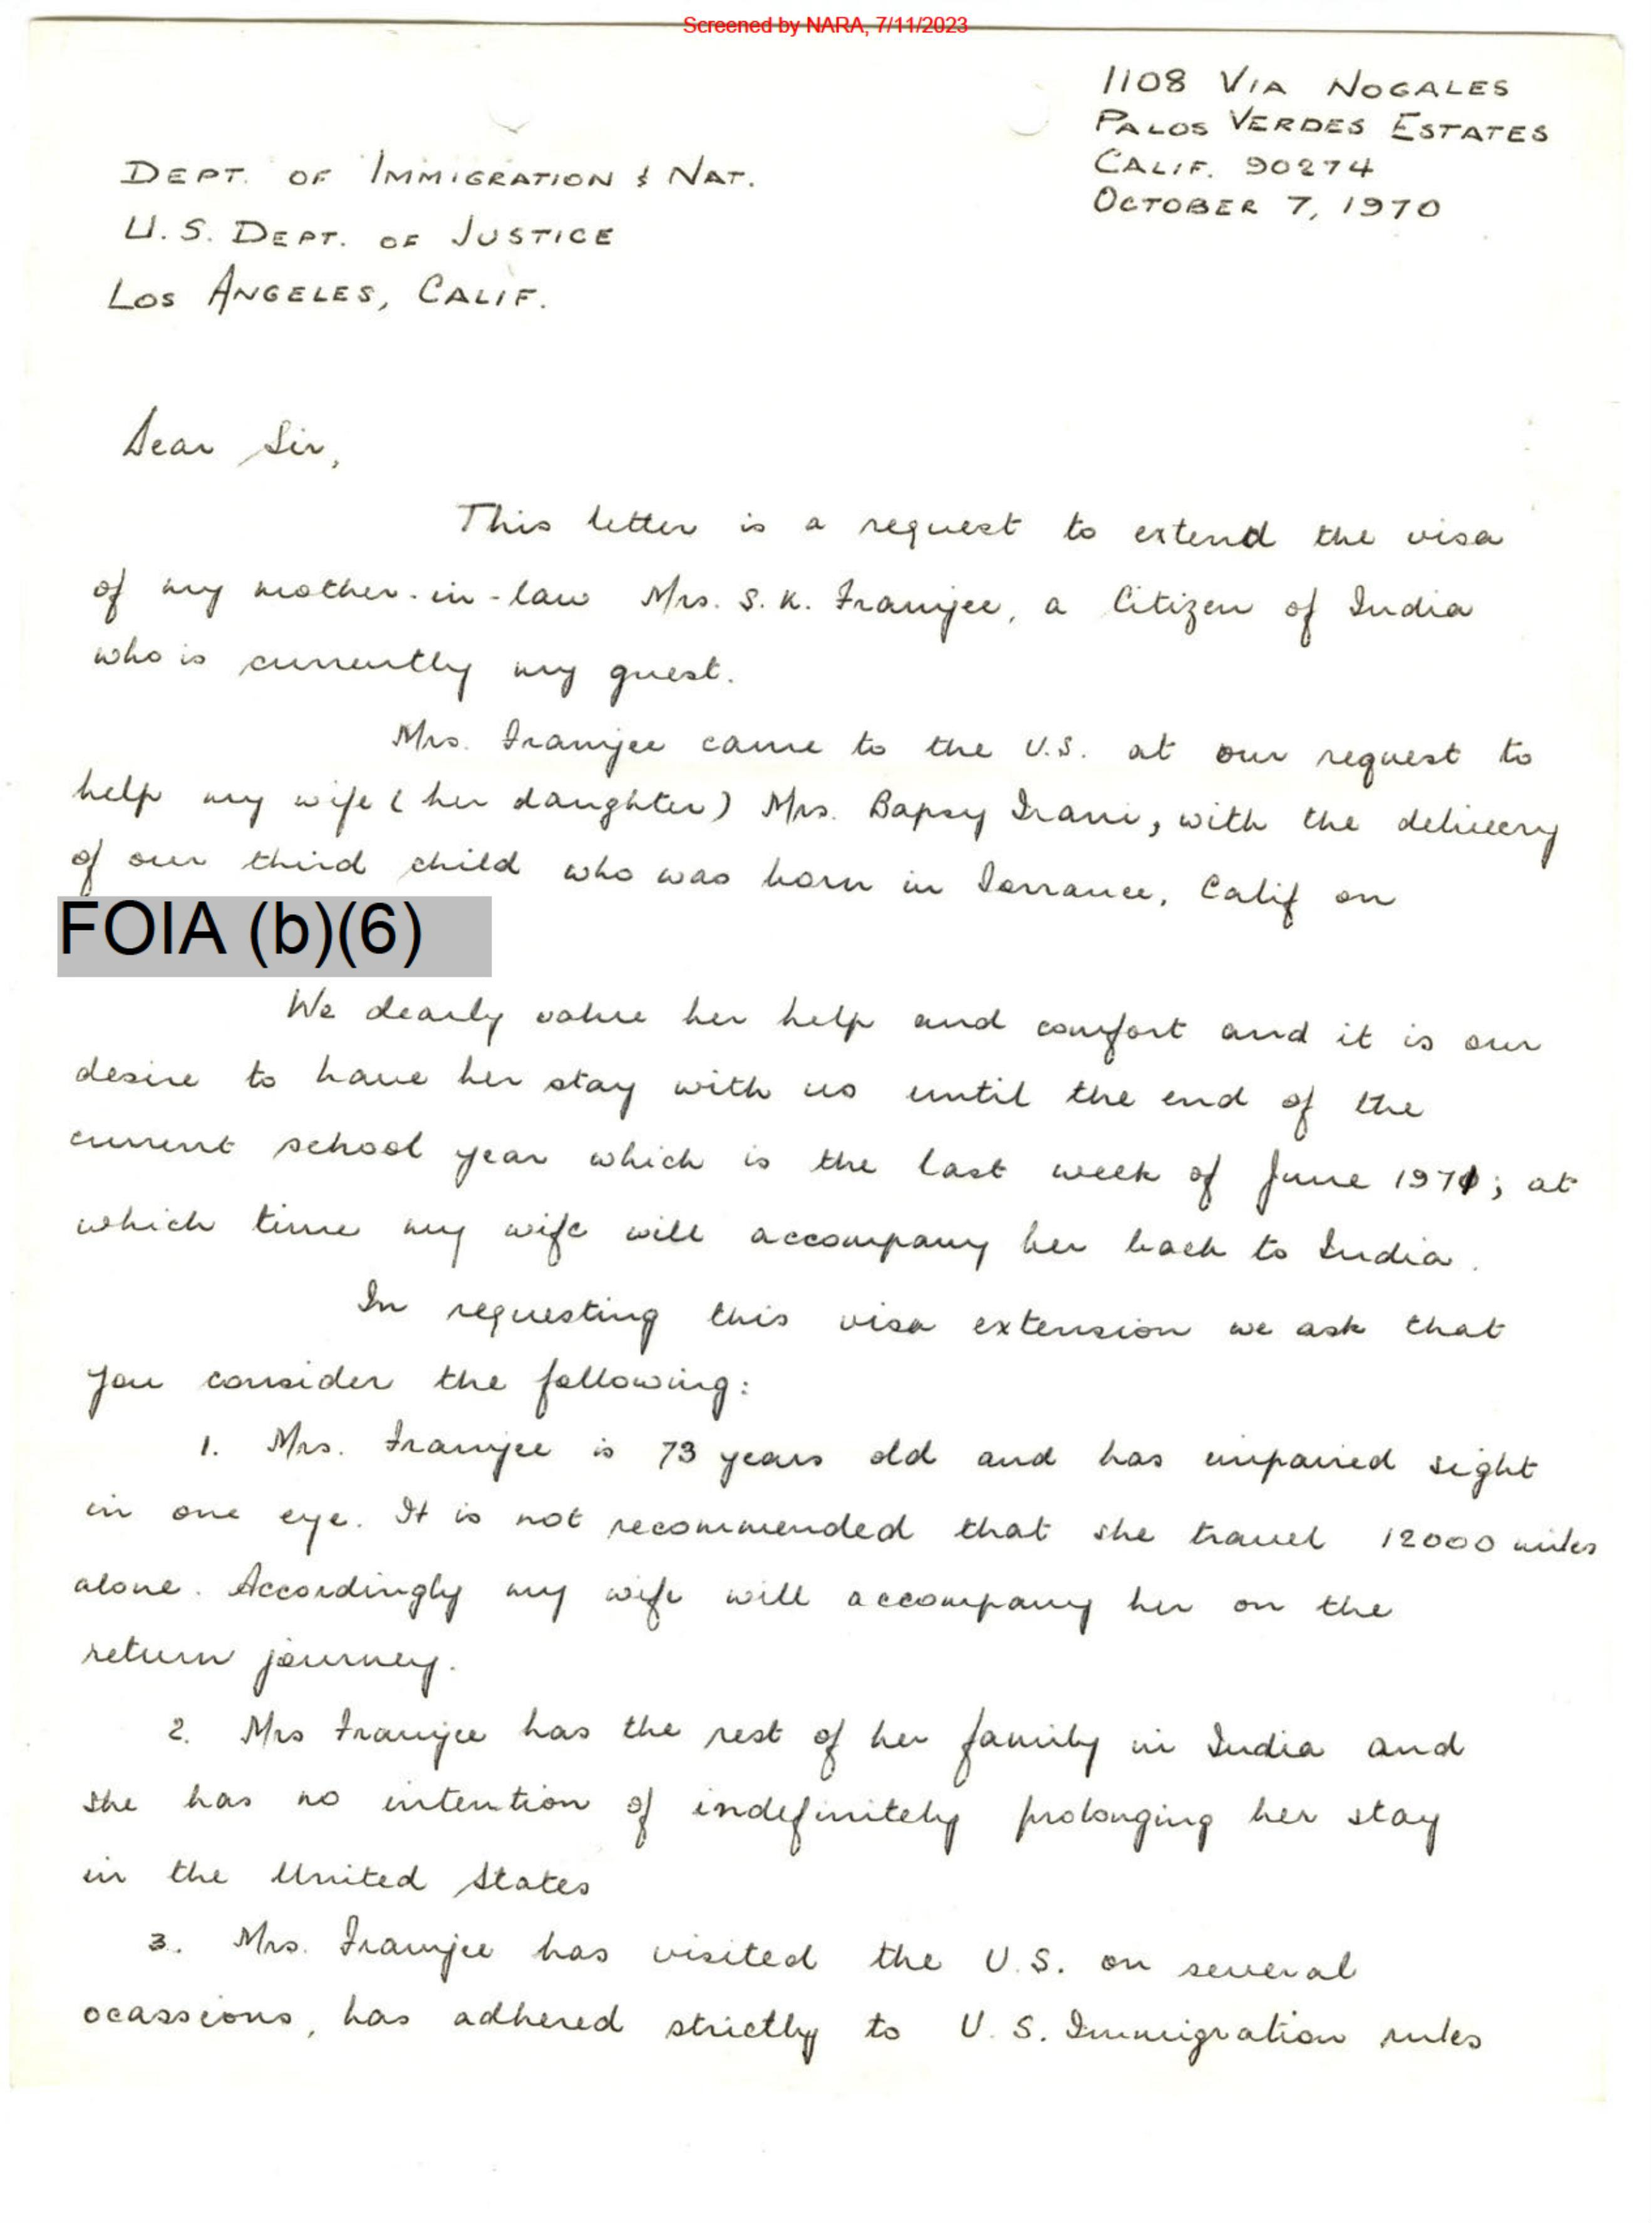 Screened by NARA, 7/11/2023
1108 VIA NOGALES
PALOS VERDES ESTATES
CALIF. 90274
OCTOBER 7, 1970
DEPT. OF IMMIGRATION & NAT.
U.S. DEPT. OF JUSTICE
LOS ANGELES, CALIF.
Dear Sir,
This letter is a request to extend the visa
of my mother-in-law Mrs. S. K. Framjee, a Citizen of India
who is currently my guest.
Mrs. Framjee came to the U.S. at our request to
help my wife (her daughter) Mrs. Bapsy Irani, with the delivery
of our third child who was born in Torrance, Calif on
FOIA (b)(6)
We dearly value her help and comfort and it is our
desire to have her stay with us until the end of the
current school year which is the last week of June 1971; at
which time my wife will accompany her back to India.
In requesting this visa extension we ask that
you consider the following:
1. Mrs. Framjee is 73 years old and has impaired sight
in one eye. It is not recommended that she travel 12000 miles
alone. Accordingly my wife will accompany her on the
return journey.
2. Mrs Framjee has the rest of her family in India and
she has no intention of indefinitely prolonging her stay
in the United States
3. Mrs. Framjee has visited the U.S. on several
ocassions, has adhered strictly to U.S. Immigration rules